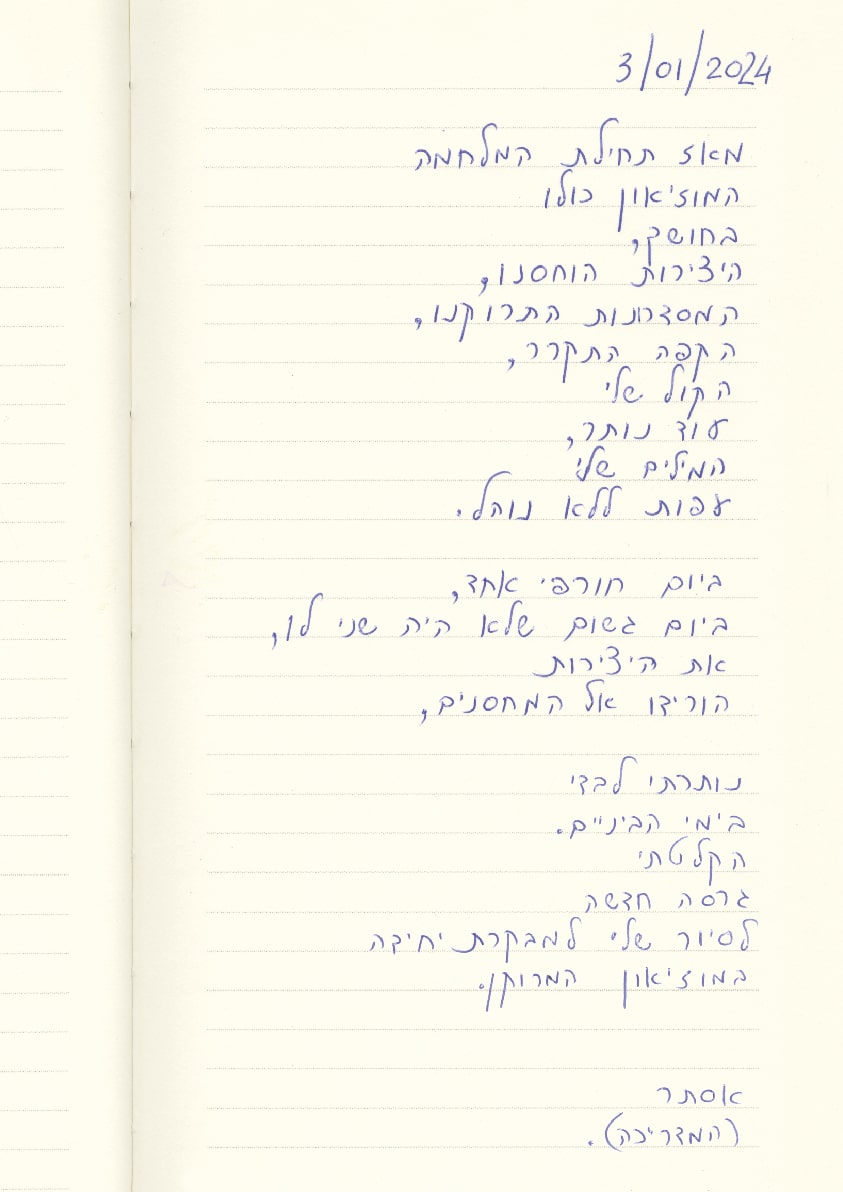 3/01/2024
מאז תחילת המלחמה
המוזיאון כולו
בחושך,
היצירות הוחסנו,
המסדרונות התרוקנו,
הקפה התקרר,
הקול שלי
עוד נותר,
המילים שלי
עפות ללא נוהל.
ביום חורפי אחד,
ביום גשום שלא היה שני לו,
את היצירות
הורידו אל המחסנים,
נותרתי לבדי
בימי הביניים.
הקלטתי
גרסה חדשה
לסיור שלי למבקרת יחידה
במוזיאון המרוקן.
אסתר
(המדריכה).